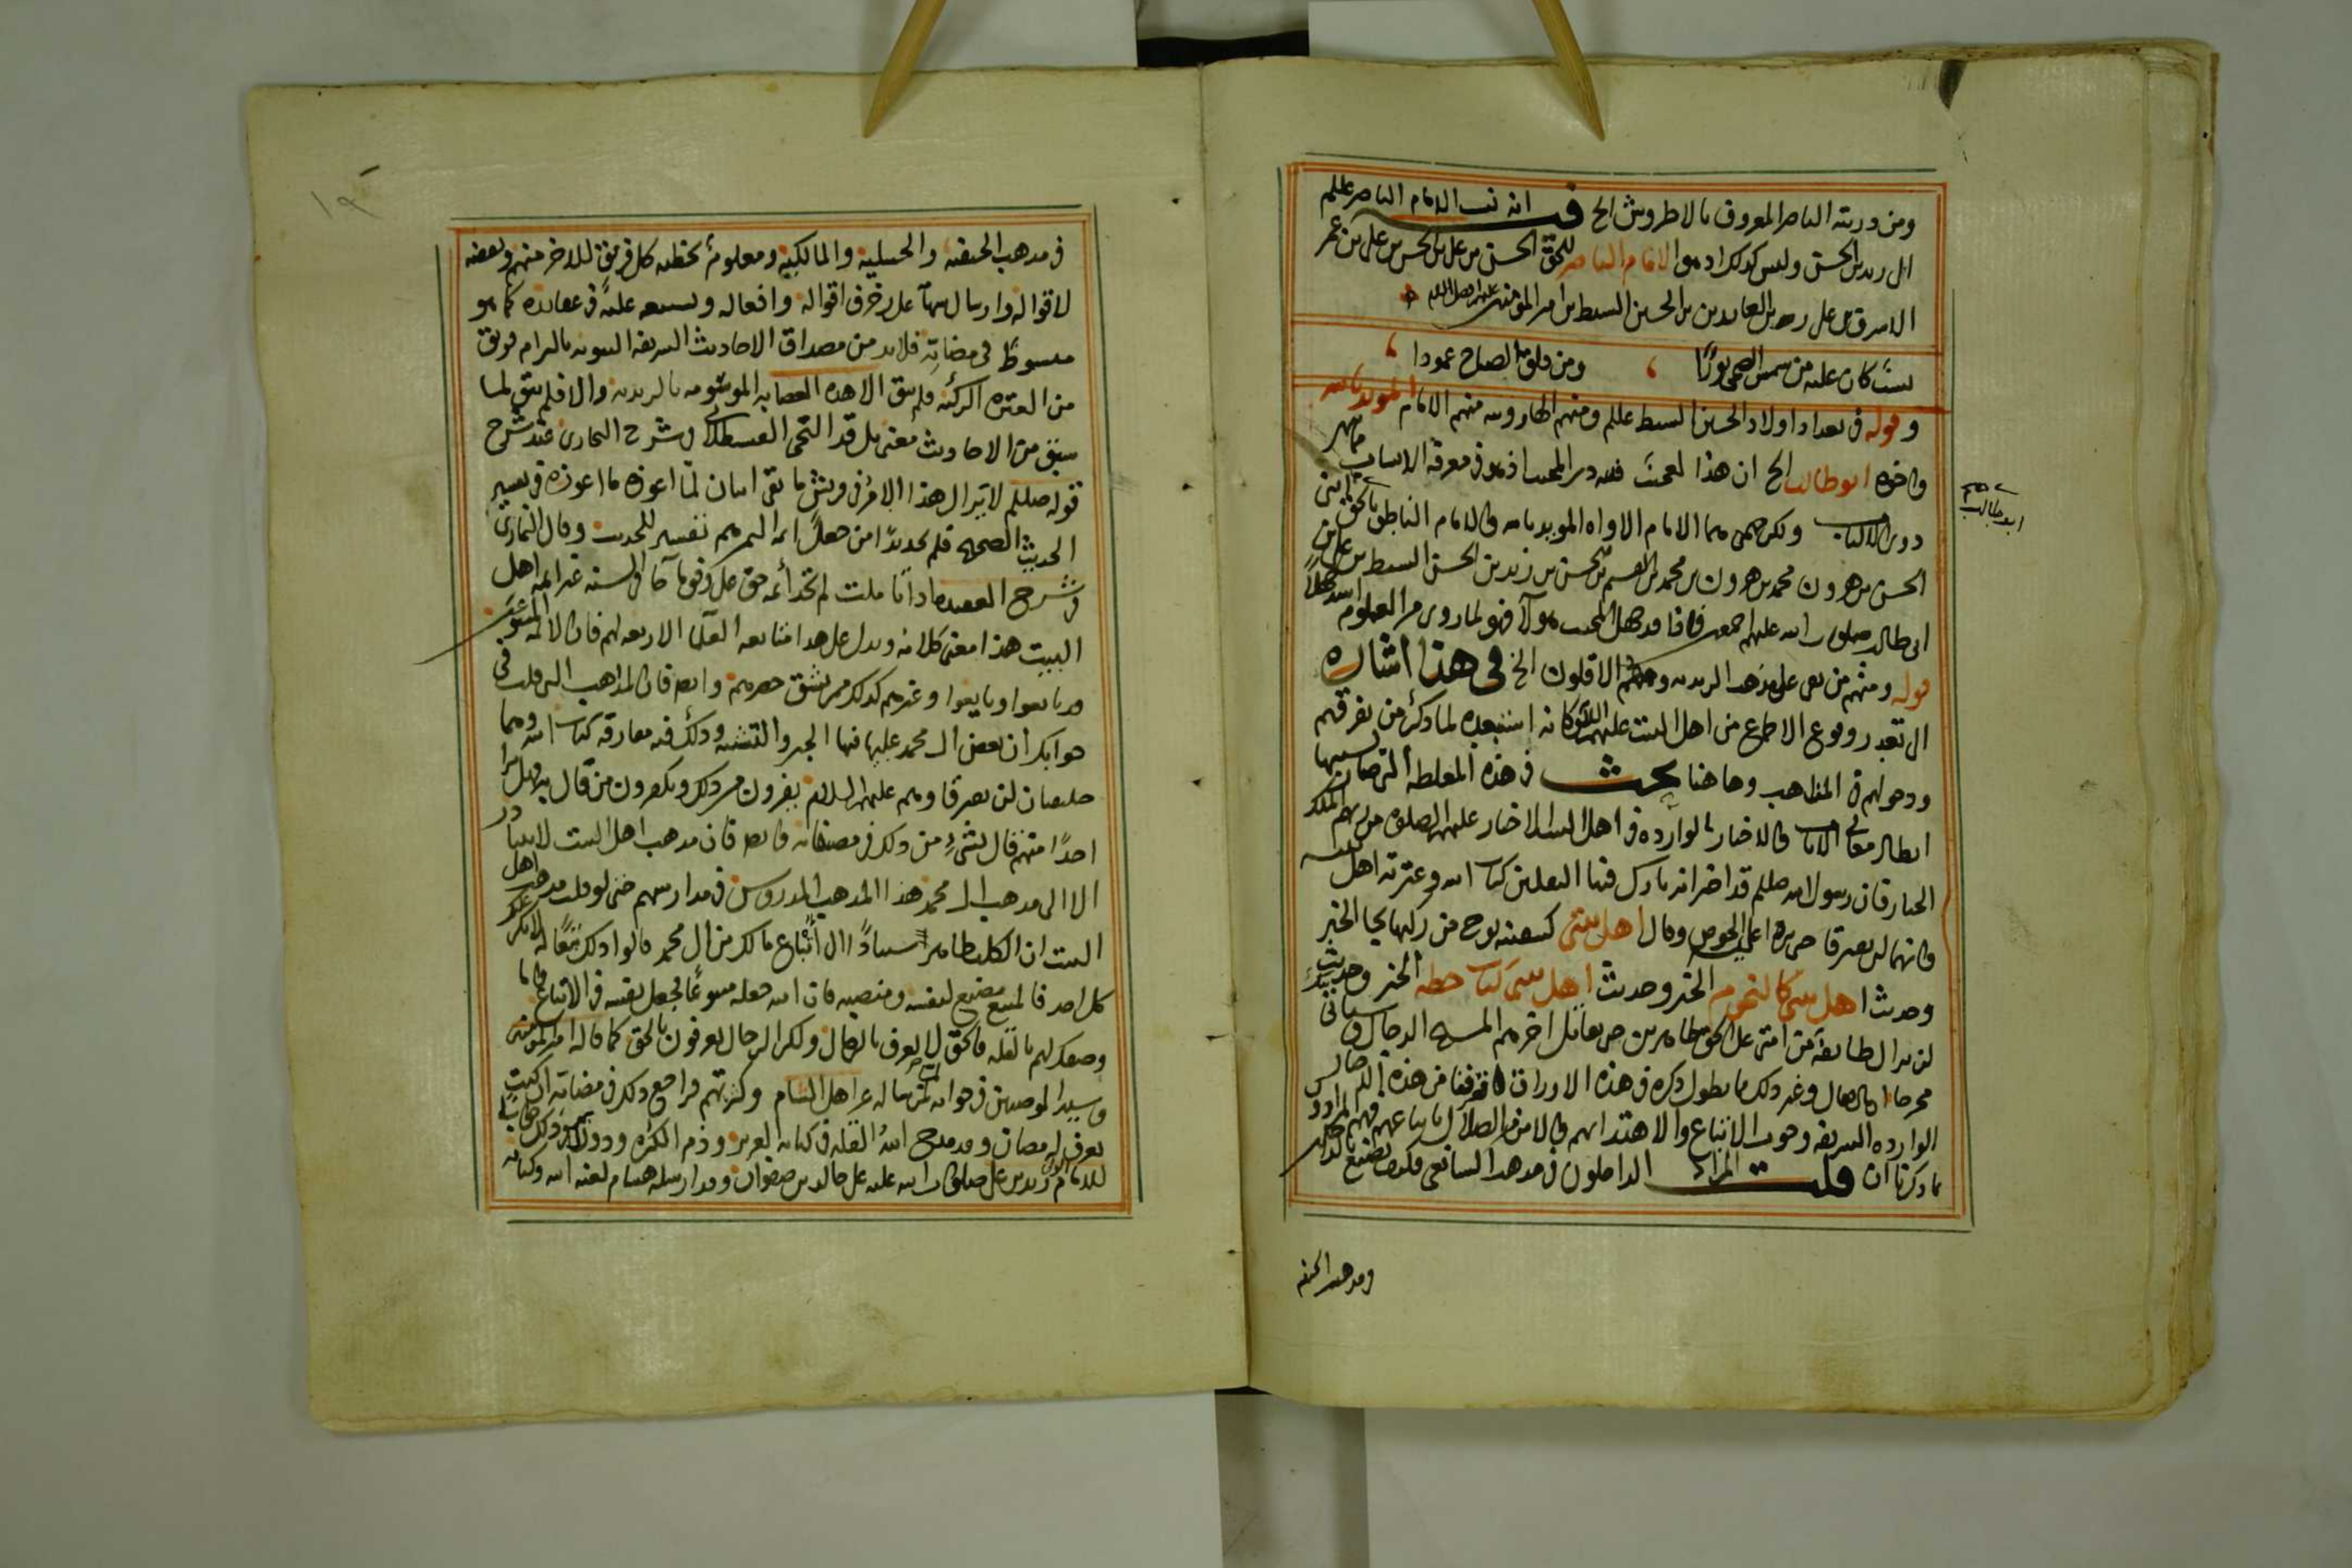 ومن ذريته الناصر المعروف بالاطروش الخ فيه انه نسب الامام الناصر عللم
الى زيد بن الحسن وليس كذلك اذ هو الامام الناصر للحق الحسن بن علي بن الحسن بن علي بن عمر
الاشرف بن علي زين العابدين بن الحسين السبط بن امير المؤمنين
نسب كان عليه من شمس الضحى نورًا ومن فلق الصباح عمودا
وقوله في تعداد اولاد الحسن السبط عللم ومنهم الهارونيه منهم الامام المويد بالله
واخوه ابو طالب الخ ان هذا لعجب فلله در المجيب اذ هو في معرفة الانساب ماهر
دون الالباب ولكن هما الامام الاواه المويد بالله والامام الناطق بالحق ابني
الحسين بن هرون بن محمد بن هرون بن محمد بن القسم بن الحسن بن زيد بن الحسن السبط بن علي بن
ابي طالب صلوات الله عليهم اجمعين فاذا قد جهل المجيب هولآ فهو لما روي من العلوم اشد جهلاً
قوله ومنهم من بقي على مذهب الزيديه وهم الاقلون الخ في هذا اشاره
الى تعذر وقوع الاجماع من اهل البيت عليهم السلم وكانه استبعده لما ذكر من تفرقهم
ودخولهم في المذاهب وها هنا بحث في هذه المغلطه التي صار بسببها
ابطال معاني الايات والاخبار الوارده في اهل البيت الاخيار عليهم الصلوة من ربهم الملك
الجبار فان رسول الله صللم قد اخبر انه تارك فينا الثقلين كتاب الله وعترته اهل بيته
وانهما لن يفترقا حتى يردا عليه الحوض وقال اهل بيتي كسفينة نوح من ركبها نجا الخبر
وحديث اهل بيتي كالنجوم الخبر وحديث اهل بيتي كباب حطه الخبر وحديث
لن تزال طايفه من امتي على الحق ظاهرين حتى يقاتل اخرهم المسيح الدجال
مخرجا وغير ذلك ما يطول ذكره في هذه الاوراق فاذا عرفنا من هذه
الوارده الشريفه وجوب الاتباع والاهتداء بهم والامن من الضلال باتباعهم فهم المراد
بما ذكرنا ان قلت المراد الداخلون في مذهب الشافعي فكيف نصنع بالداخلين
ومذهب الحنفيه
ابو طالب
في مذهب الحنفيه والحنبلية والمالكية ومعلوم تخطيه كل فريق للاخر منهم ونقضه
لاقواله وارسال سهام على زخرف اقواله وافعاله وتشنيعه عليه في عقائده كما هو
مبسوط في مضانه فلابد من مصداق الاحاديث الشريفه النبويه بالزام فريق
من العتره الزكيه فلم يبق الا هذه العصابه الموسومه بالزيديه والا فلم يبق لما
سبق من الاحاديث معنى بل قد التجى القسطلاني في شرح البخاري عند شرح
قوله صللم لا يزال هذا الامر في قريش ما بقي اثنان لما اعوزه ما اعوزه في تفسير
الحديث الصحيح فلم يجد بدّا من جعل ايمة اليمن هم تفسير للحديث وقال
في شرح العقيده اذا تاملت لم تجد أيمه حق على وفق ما جآ في السنه غير ايمه اهل
البيت هذا معنى كلامه ويدل على هذا متابعه العلما الاربعه لهم فان الايمه المتبوعين
قد تابعوا وبايعوا وغيرهم كذلك ممن يشق حصرهم وايضا فان المذاهب التي قلت في
جوابك ان بعض ال محمد عليها فيها الجبر والتشبيه وذلك فيه مفارقة كتاب الله وهما
خليفتان لن يفترقا وهم عليهم السلام يفرون من ذلك ويكفرون من قال به فهل ترا
احدًا منهم قال بشيء من ذلك في مصنفاته وايضا فان مذهب اهل البيت لا يتبادر
الا الى مذهب ال محمد هذا المذهب المدروس في مدارسهم حتى لو قلت مذهب اهل
البيت ان الكلب طاهر اسنادًا الى أتباع مالك من ال محمد قالوا ذلك تبعًا له لانكر عليك
كل احد فالمتبع مضيع لنفسه ومنصبه فان الله جعله متبوعًا فجعل نفسه في الاتباع واما
وصفك لهم بالقله فالحق لا يعرف بالرجال ولكن الرجال يعرفون بالحق كما قاله امير المؤمنين
وسيد الموصين في جوابه لمن ساله عن اهل الشام وكثرتهم فراجع ذلك في مضانه ان كنت
تعرف له مضان وقد مدح الله القله في كتابه العزيز وذم الكثره
للامام الولي زيد بن علي صلوات الله عليه على خالد بن صفوان وقد ارسله هشام لعنه الله وكتابه